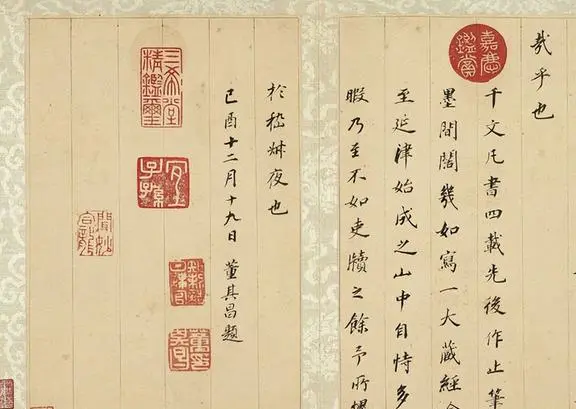 哉乎也
嘉慶鑑賞
千文凡書四載先後作止筆
墨間闊幾如寫一大藏經
至延津始成之山中自恃多
暇乃至不如吏牘之餘予所
於嵇叔夜也
己酉十二月十九日 董其昌題
三希堂精鑑璽
宜子孫